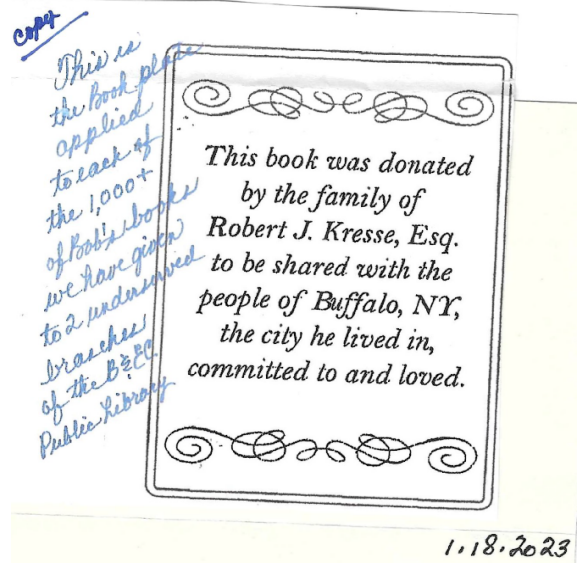 copy
This is
the Book plate
applied
to each of
the 1,000+
of Bob's books
we have given
to 2 underserved
branches
of the B & EC
Public Library
This book was donated
by the family of
Robert J. Kresse, Esq.
to be shared with the
people of Buffalo, NY,
the city he lived in,
committed to and loved.
1.18.2023